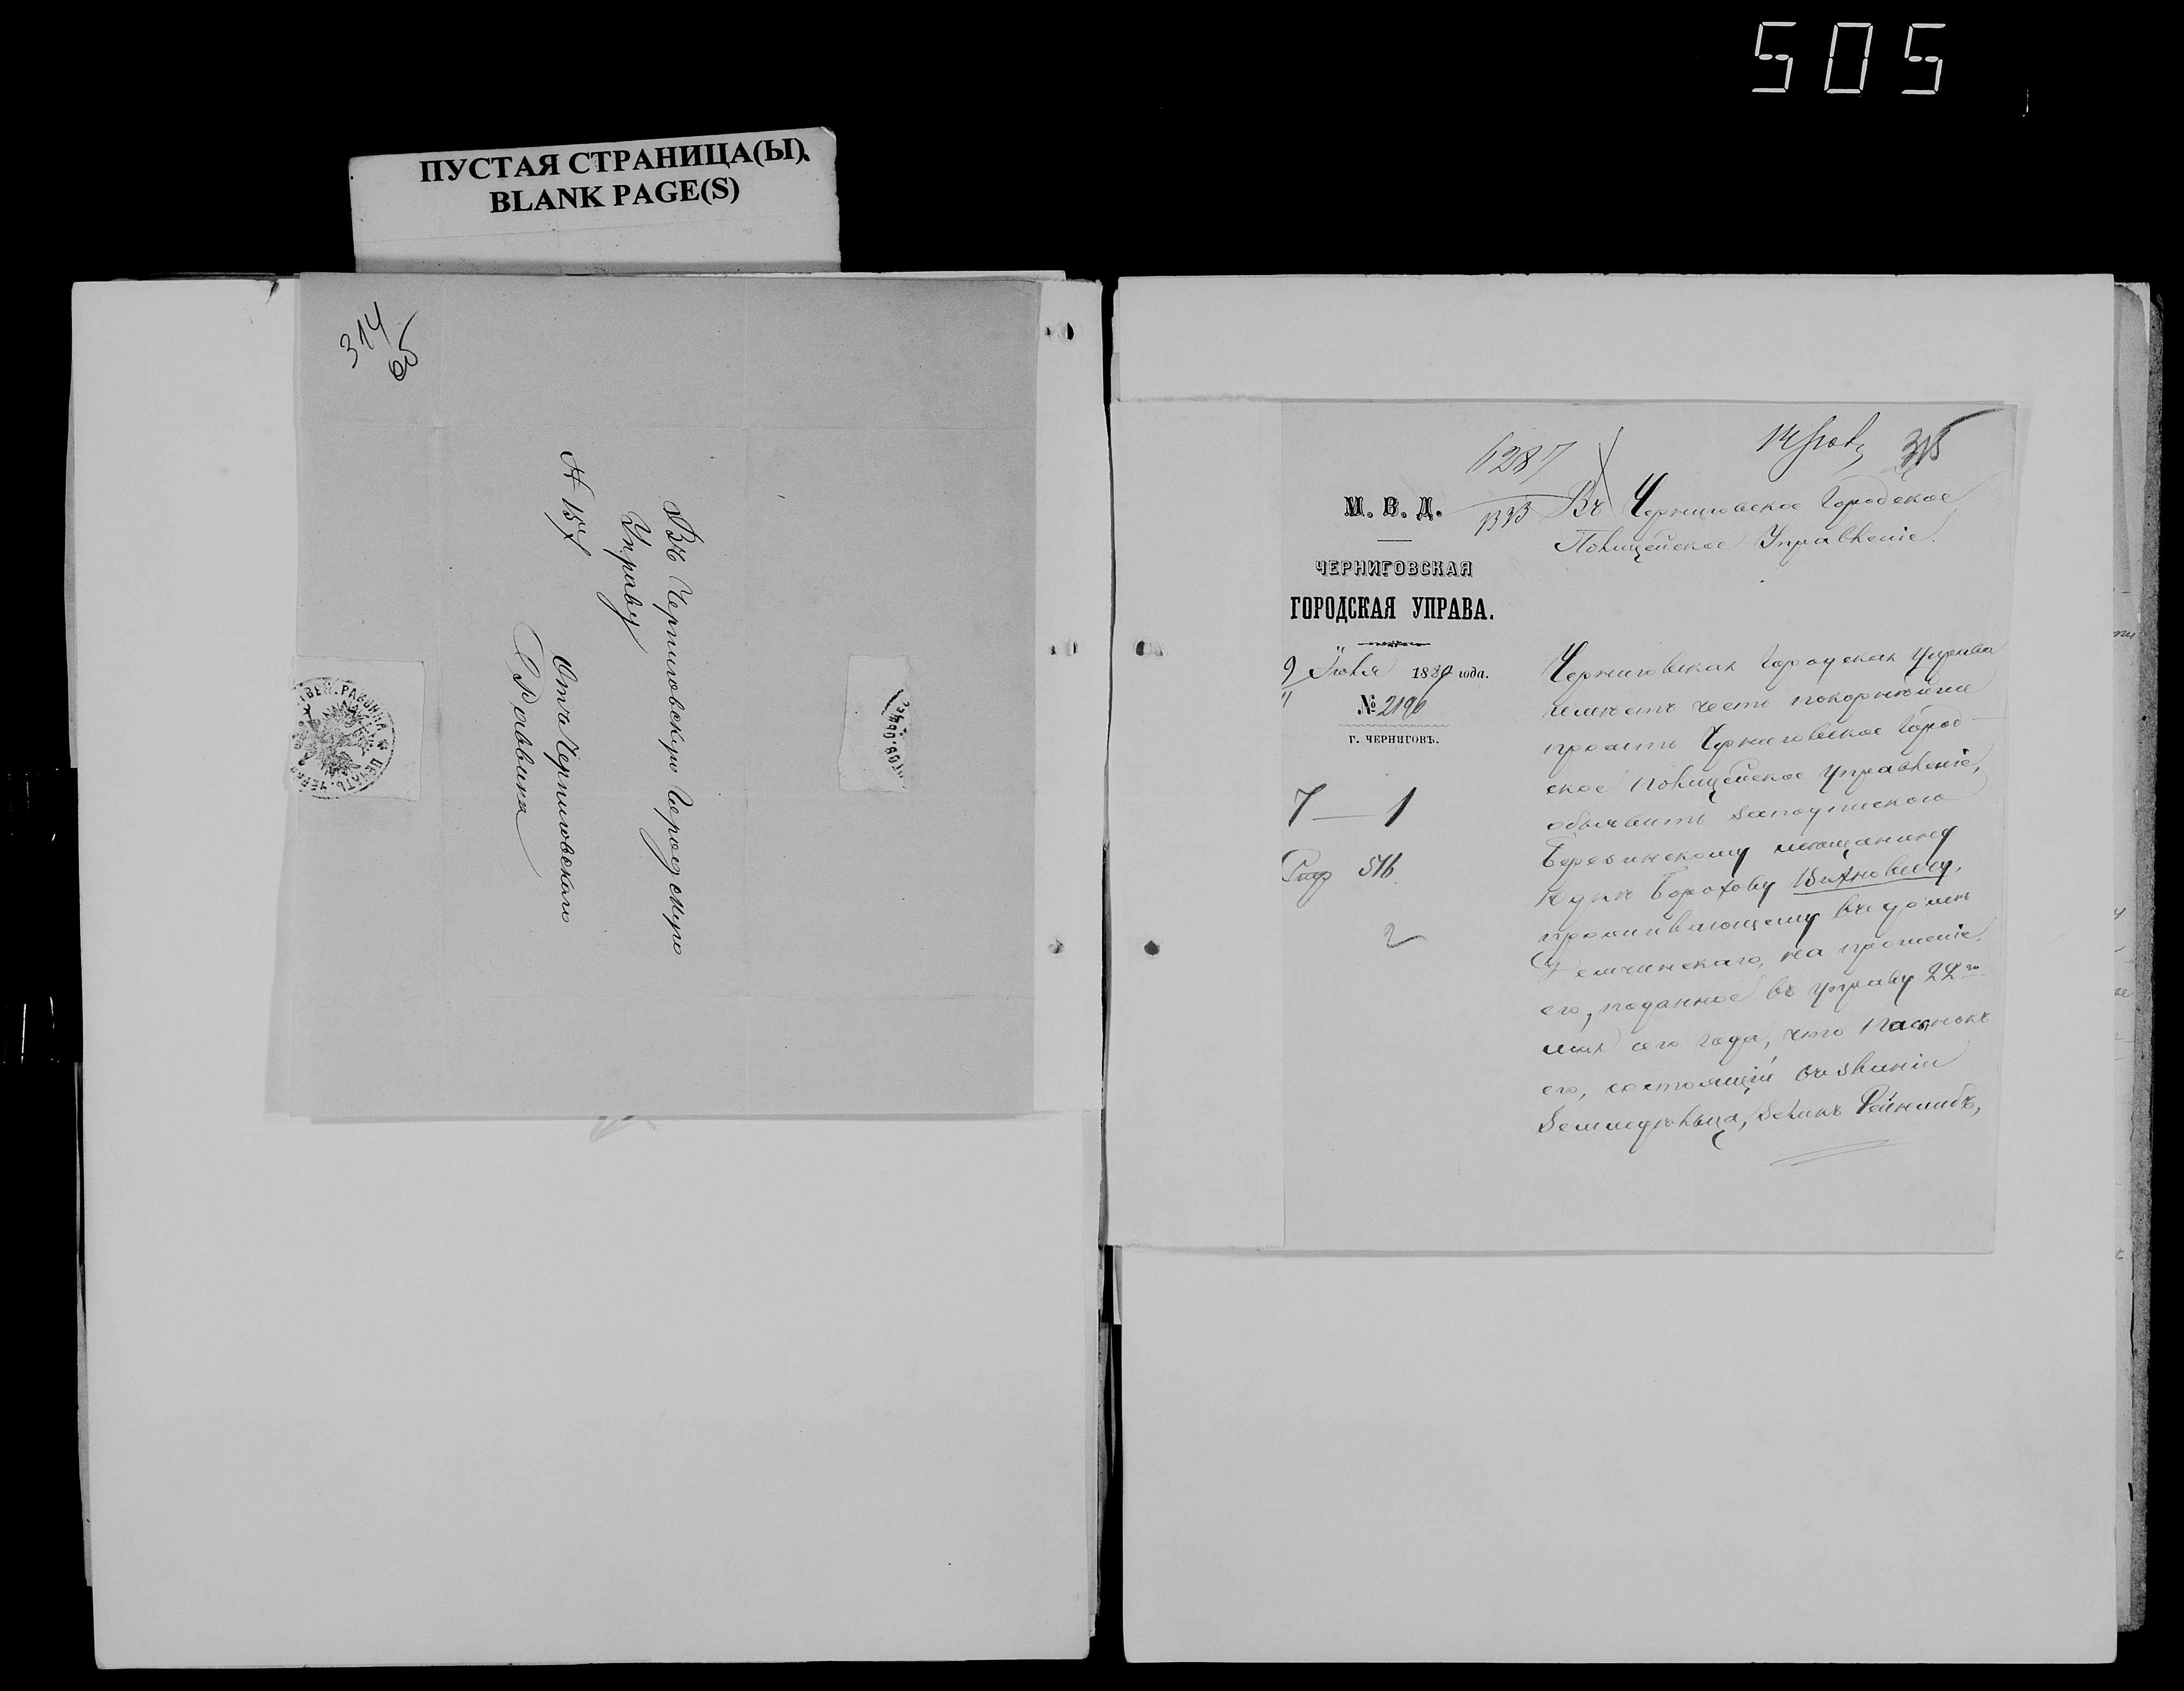 505
ПУСТАЯ СТРАНИЦА(Ы)
BLANK PAGE(S)
314
Въ Черниговскую Городскую
Управу
№ 157
Отъ Черниговскаго
Раввина
315
6287
М. В. Д.
ЧЕРНИГОВСКАЯ
ГОРОДСКАЯ УПРАВА.
9 Іюня 1889 года.
№ 2190
Г. ЧЕРНИГОВЪ.
7 — 1
516
2
Въ Черниговское Городское
Полицейское Управленіе.
Черниговская Городская Управа
имѣетъ честь покорнѣйше
проситъ Черниговское Город-
ское Полицейское Управленіе,
объявить
Березинскому мѣщанину
Юдкѣ Борохову
проживающему въ домѣ
на прошеніе
его, поданное въ Управу 22го
мая сего года, что пасынокъ
его, состоящій въ званіи
Земледѣльца, Зеликъ Рейнлибъ,